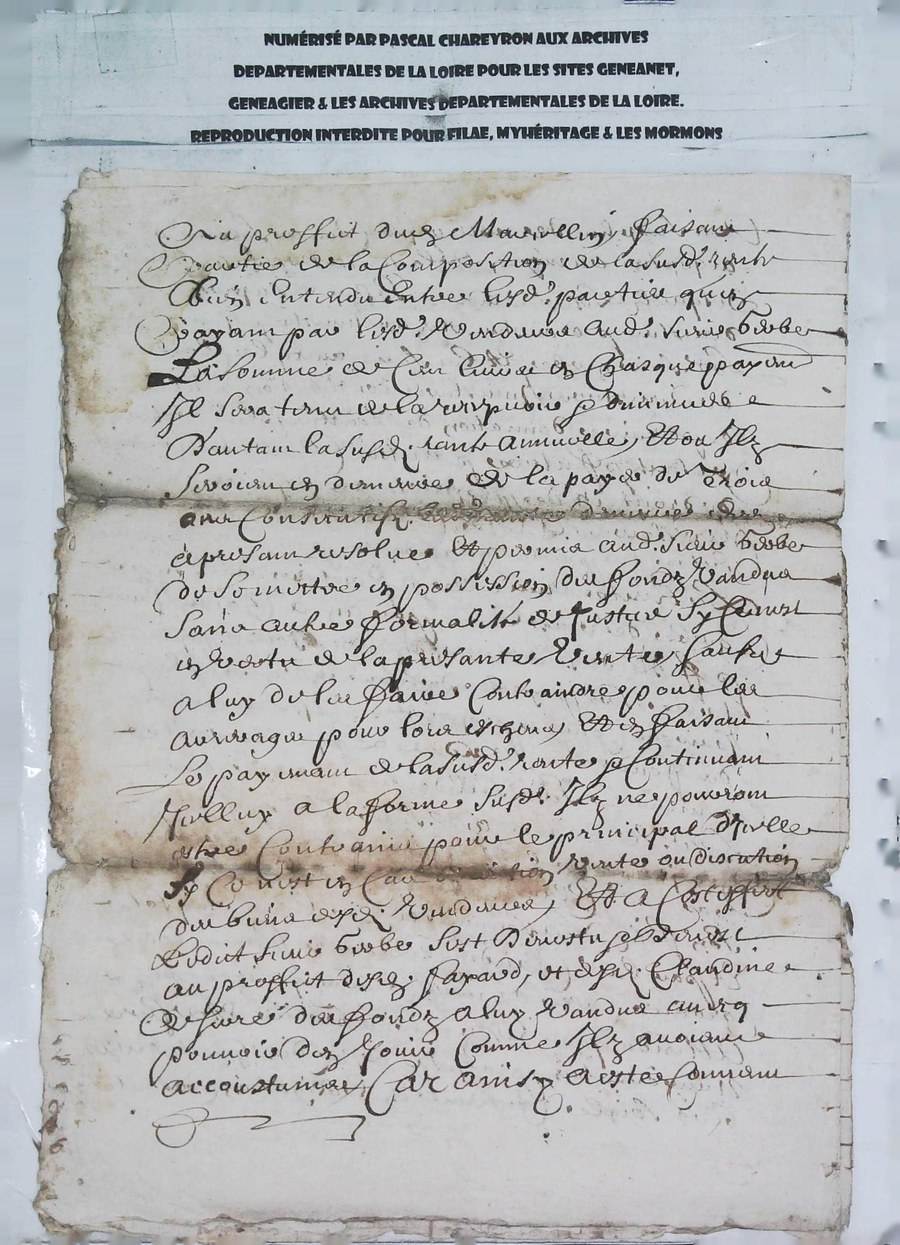 NUMÉRISÉ PAR PASCAL CHAREYRON AUX ARCHIVES
DEPARTEMENTALES DE LA LOIRE POUR LES SITES GENEANET,
GENEAGIER & LES ARCHIVES DEPARTEMENTALES DE LA LOIRE.
REPRODUCTION INTERDITE POUR FILAE, MYHÉRITAGE & LES MORMONS
Au proffict dud Marcellin, faisant
Partie de la Composition de la susd. rente
Bien Entendu Entre lesd. parties quen
payant par lesd. Vendeurs aud. sieur
La somme de Cent livres en Chasque payement
Il sera tenu de la recepvoir
D'autant la susd. rante Annuelle, Et ou Ilz
seroient en demeure de la paye de Trois
a presant resolue Et permis aud. sieur
de se mettre en possession des fondz Vandus
sans autre formalité de Justice
en vertu de la presante Vente, sauf
a luy de les faire Contraindre, pour les
arrerages pour lors escheus, Et en faisant
Le payement de la susd. rente Continuant
Icelluy a la forme susd. Ilz ne pourront
estre Contrains pour le principal d'Icelle
Vente ou discution
des biens desd. Vendeurs, Et a Cest effect
Ledict sieur s'est
au proffict desd. fayard, et desd. Claudine
des fondz a luy Vandus
pouvoir den Jouir Comme Ilz avoient
accoustumes, Car ainsy a esté Convenu